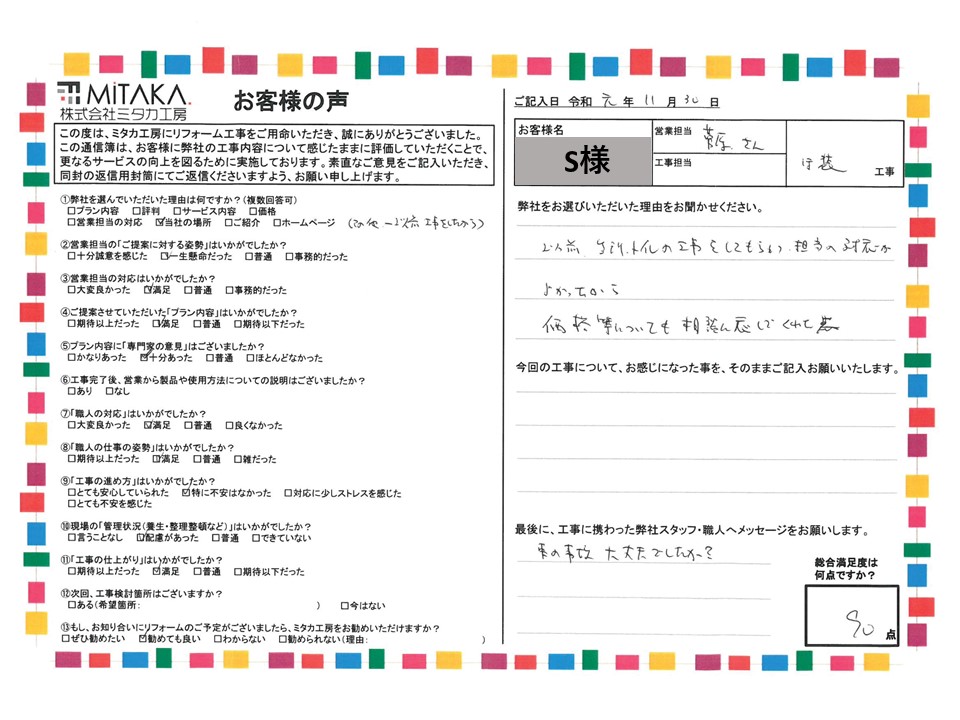 MiTAKA.
株式会社ミタカ工房
お客様の声
この度は、ミタカ工房にリフォーム工事をご用命いただき、誠にありがとうございました。
この通信簿は、お客様に弊社の工事内容について感じたままに評価していただくことで、
更なるサービスの向上を図るために実施しております。素直なご意見をご記入いただき、
同封の返信用封筒にてご返信くださいますよう、お願い申し上げます。
①弊社を選んでいただいた理由は何ですか？(複数回答可)
□プラン内容 □評判 □サービス内容 □価格
□営業担当の対応 ☑当社の場所 □ご紹介 □ホームページ
②営業担当の「ご提案に対する姿勢」はいかがでしたか？
□十分誠意を感じた ☑一生懸命だった □普通 □事務的だった
③営業担当の対応はいかがでしたか？
□大変良かった ☑満足 □普通 □事務的だった
④ご提案させていただいた「プラン内容」はいかがでしたか？
□期待以上だった ☑満足 □普通 □期待以下だった
⑤プラン内容に「専門家の意見」はございましたか？
□かなりあった ☑十分あった □普通 □ほとんどなかった
⑥工事完了後、営業から製品や使用方法についての説明はございましたか？
□あり □なし
⑦「職人の対応」はいかがでしたか？
□大変良かった ☑満足 □普通 □良くなかった
⑧「職人の仕事の姿勢」はいかがでしたか？
□期待以上だった ☑満足 □普通 □雑だった
⑨「工事の進め方」はいかがでしたか？
□とても安心していられた ☑特に不安はなかった □対応に少しストレスを感じた
□とても不安を感じた
⑩現場の「管理状況(養生・整理整頓など)」はいかがでしたか？
□言うことなし ☑配慮があった □普通 □できていない
⑪「工事の仕上がり」はいかがでしたか？
□期待以上だった ☑満足 □普通 □期待以下だった
⑫次回、工事検討箇所はございますか？
□ある(希望箇所: ) □今はない
⑬もし、お知り合いにリフォームのご予定がございましたら、ミタカ工房をお勧めいただけますか？
□ぜひ勧めたい ☑勧めても良い □わからない □勧められない(理由: )
ご記入日 令和 元 年 11 月 30 日
お客様名
S様
営業担当 さん
工事担当
工事
弊社をお選びいただいた理由をお聞かせください。
の工事をしてもらい、担当の対応が
よかったから
価格等についても相談に応じてくれた
今回の工事について、お感じになった事を、そのままご記入お願いいたします。
最後に、工事に携わった弊社スタッフ・職人へメッセージをお願いします。
車の事故 大丈夫でしたか？
総合満足度は
何点ですか？
90 点